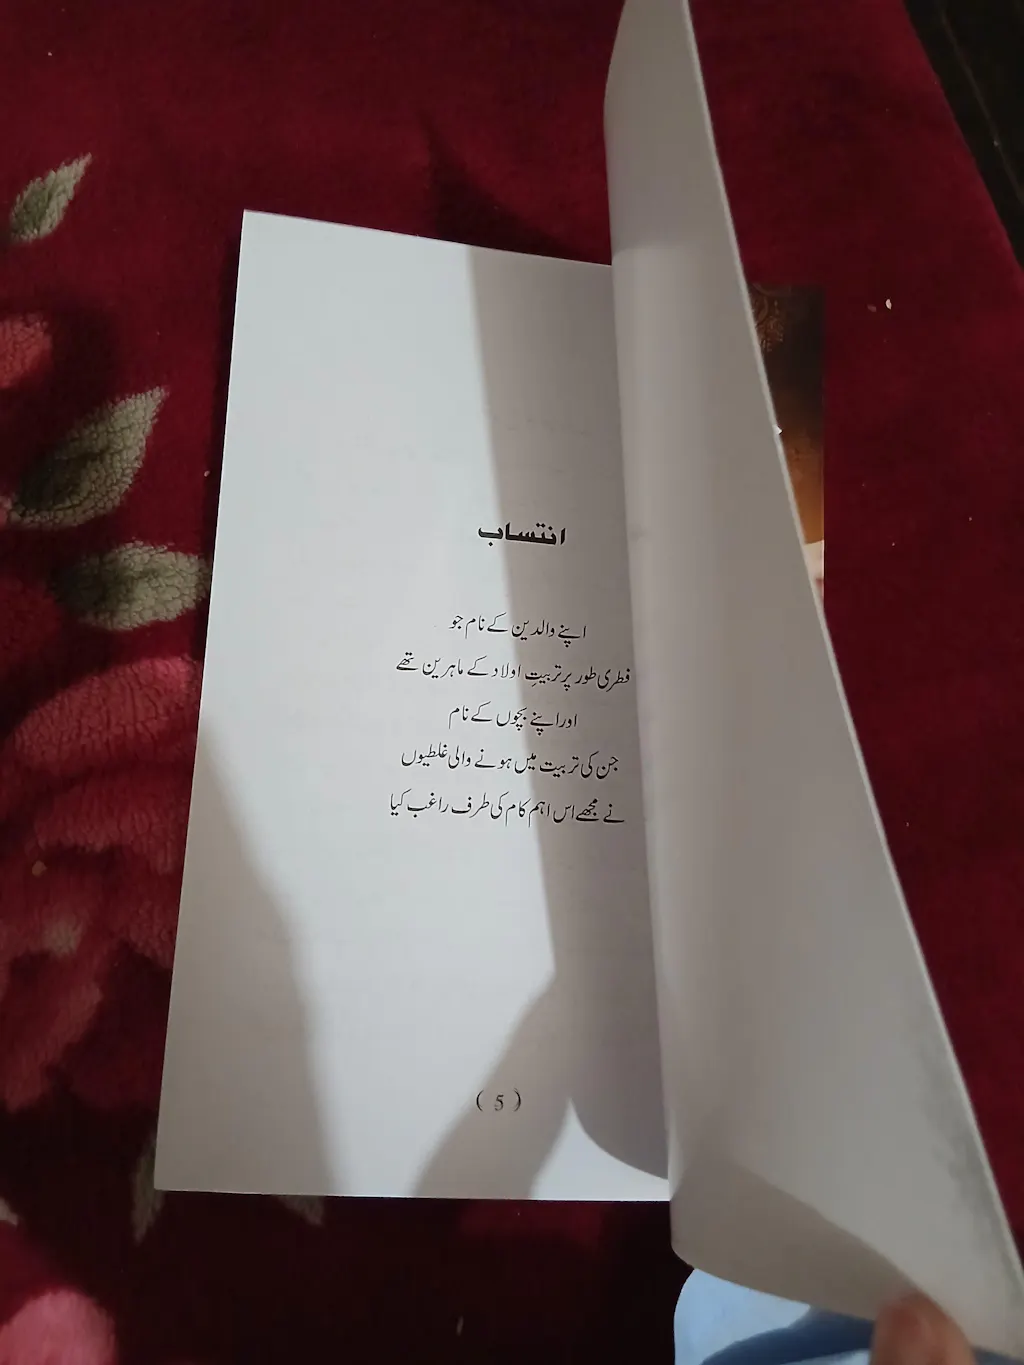 انتساب
اپنے والدین کے نام جو
فطری طور پر تربیتِ اولاد کے ماہرین تھے
اور اپنے بچوں کے نام
جن کی تربیت میں ہونے والی غلطیوں
نے مجھے اس اہم کام کی طرف راغب کیا
( 5 )